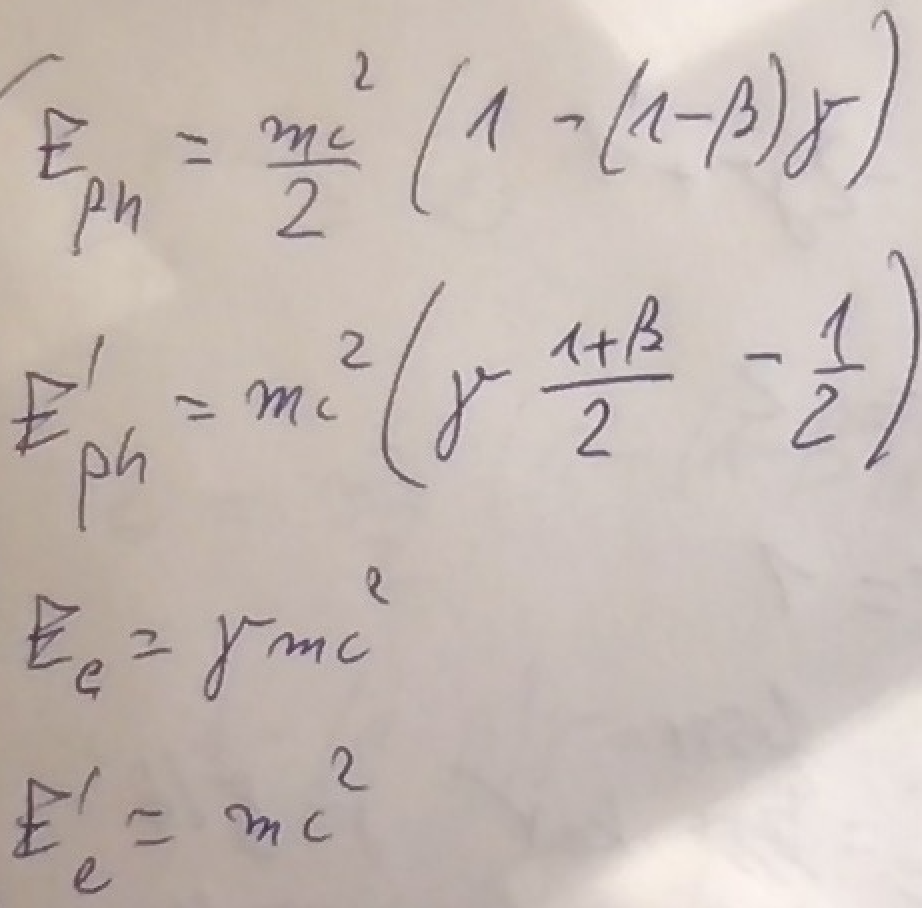 E_ph = mc²/2 (1 - (1-β)γ)
E'_ph = mc² (γ (1+β)/2 - 1/2)
E_e = γmc²
E'_e = mc²